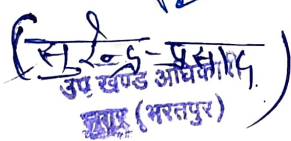 (सुरेन्द्र प्रसाद)
उप खण्ड अधिकारी
(भरतपुर)